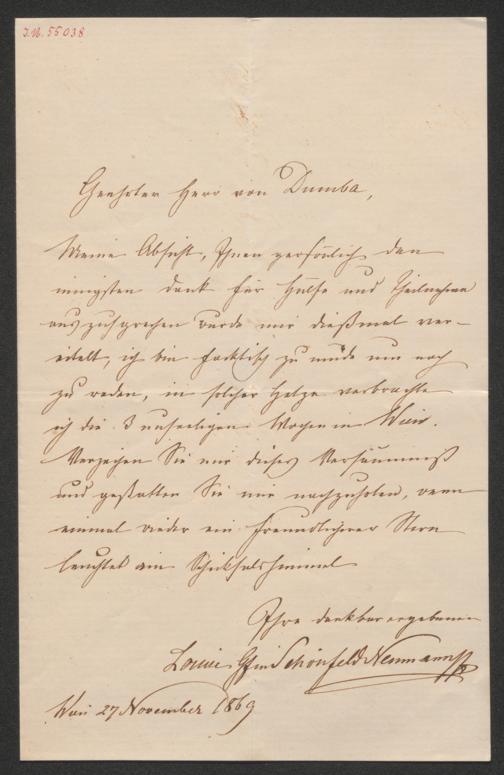 I.N. 55038
Geehrter Herr von Dumba,
Meine Absicht, Ihnen persönlich den
innigsten Dank für Hülfe und Theilnahme
auszusprechen wurde mir dießmal ver-
eitelt, ich bin factisch zu müde um noch
zu reden, in solcher Hetze verbrachte
ich die 3 unseeligen Wochen in Wien.
Verzeihen Sie mir dieses Versäumniß
und gestatten Sie mir nachzuholen, wenn
einmal wieder ein freundlicherer Stern
leuchtet am Schicksalshimmel
Ihre dankbar ergebene
Louise Gfin Schönfeld Neumann
Wien 27 November 1869